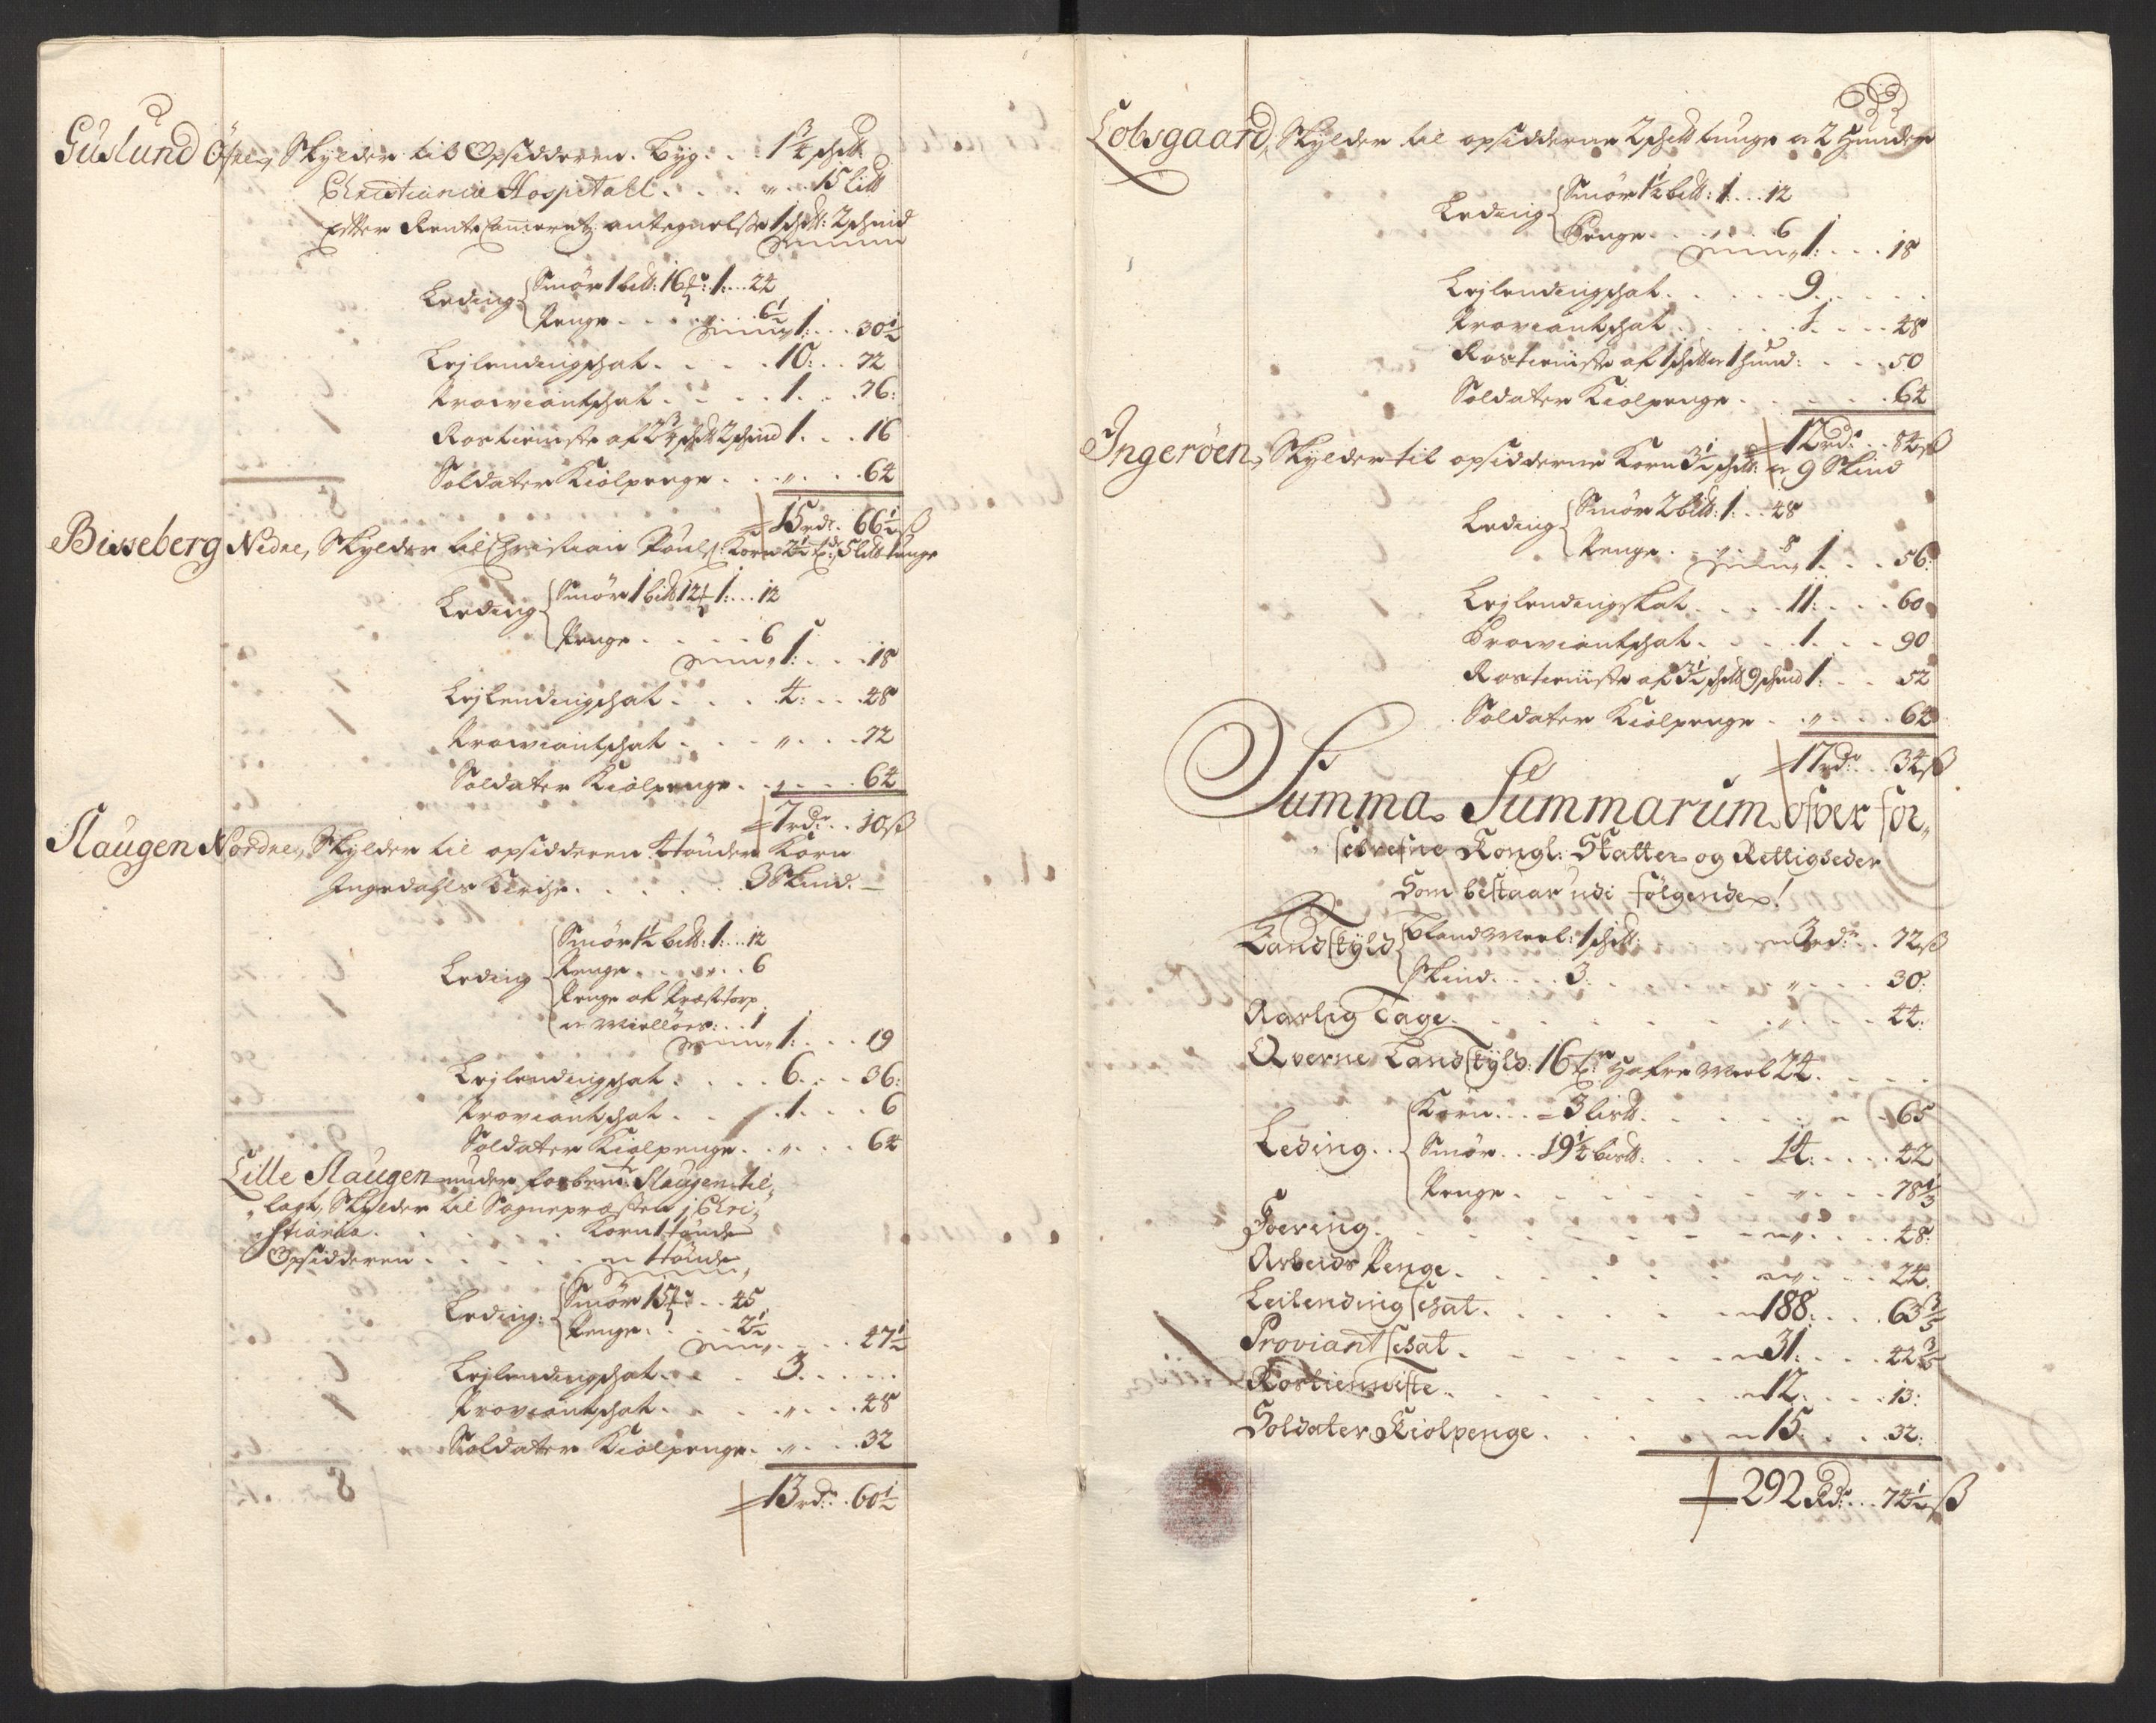 Guslund Östre, Skylder til Opsidderen. Byg. . . 1 3/4 sch℔
Christiania Hospitahl . . . . „ . . 15 Li℔
Efter Rente Cammeretz antegnelsse 1 sch℔: 2 schind
Leding { Smör 1 b℔: 16 . 1: . . 24
Penge . . . . „ . . 6 1/2
1: . . 30 1/2
Lejlendingschat . . . . 10: . . 72
Prowiantschat . . . . 1 . . . 76:
Rostieniste af 2 3/4 sch℔ 2 schind 1 . . . 16
Soldater Kiolpenge . . . „ . . . 64
15 rdr. 66 1/2 ß
Bisseberg Nedre, Skylder til Christian Pouls: Korn 2 1/2 5 Li℔ tunge
Leding { Smör 1 b℔ 12 1: . . . 12
Penge . . . . 6
1: . . . 18
Lejlendingschat . . . . 4: . . . 48
Prowiantschat . . . „ . . . 72
Soldater Kiolpenge . . „ . . . 64
7 rdr: . . 10 ß
Slaugen Nordre, Skylder til opsidderen 4 tönder Korn
Ingedahls Kirche . . . . . . 3 Skind. —
Leding { Smör 1 1/2 b℔: 1: . . . 12
Penge . . . „ . . 6
Penge af Præsttorp
. . 1
1: . . . 19
Lejlendingschat . . . . 6 . . . 36:
Proviantschat . . . 1 . . . 6
Soldater Kiolpenge . . „ . . . 64
Lille Slaugen under forbente Slaugen til„
„lagt, Skylder til Sognepræsten j Chri„
„stiania . . . . . . Korn 1 tönde
Opsidderen . . . . . „ 1 tönde
Leding: { Smör 15 . . 45
Penge . . . . 2 1/2
. . . . 47 1/2
Lejlendingschat . . . . 3 . . . . .
Proviantschat . . . . „ . . . 48
Soldater Kiolpenge . . „ . . . 32
13 rdr: . 60 1/2
Lobsgaard, Skylder til opsidderne 2 sch℔ tunge „ 2 Huuder
Leding { Smör 1 1/2 b℔: 1 . . . 12
Penge . . . . . 6
1: . . . 18
Lejlendingschat . . . . . 9 . . . . .
Proviantschat . . . . . 1 . . . 48
Rostieniste af 1 sch℔ „ 1 huud: . . . 50
Soldater Kiolpenge . . . . . . 64
12 rdr: . . 84 ß
Ingeröen, Skylder til opsidderne Korn 3 1/2 sch℔: „ 9 Skind
Leding { Smör 2 b℔: 1 . . 48
Penge . . „ . . 8
1 . . . 56:
Lejlendingskat . . . . 11: . . . 60
Prowiantschat . . . . 1 . . . 90
Rostieniste af 3 1/2 sch℔ 9 schind 1: . . . 52
Soldater Kiolpenge . . „ . . . 64
17 rdr: . . 34 ß
Summa Summarum Ofver for„
„schrefne Kongl: Skatter og Rettigheder
Som bestaar udi fölgende!
Landskyld { Bland Meel: 1 sch℔: . . . 3 rdr: . 72 ß
Skind . . . . 3 . . . . . „ . . . 30:
Aarlig Tage . . . . . . . „ . . . 44:
Qverne Landskyld: 16 Hafre Meel 24 . . . .
Leding . . { Korn . . . 3 lis℔ . . . . . . 65
Smör . . . 19 1/4 bis℔: . . . . 14: . . . . 42
Penge . . . . . . . „ . . . 78 1/3
Foering . . . . . . . . „ . . . 48:
Arbeids Penge . . . . . . . „ . . . 24.
Leilending schat . . . . . . 188: . . . 63 3/5
Proviant schat . . . . . . 31: . . . 42
Rostienniste . . . . . . . 12 . . . . 13:
Soldater Kiolpenge . . . . . 15 . . . 32:
292 Rdr: . . 74 1/2 ß